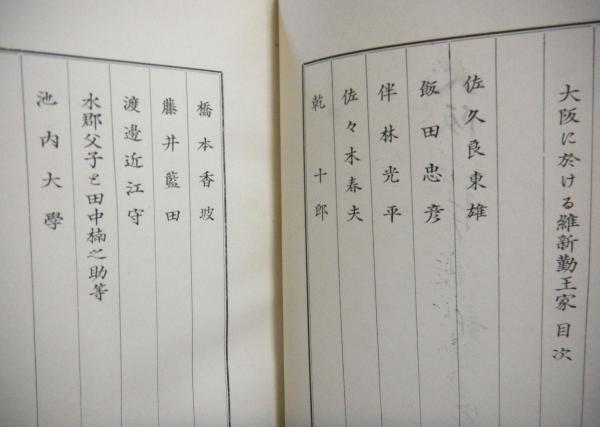 大阪に於ける維新勤王家目次
佐久良東雄
飯田忠彦
伴林光平
佐々木春夫
乾十郎
橋本香坡
藤井藍田
渡邊近江守
水郡父子と田中楠之助等
池内大學